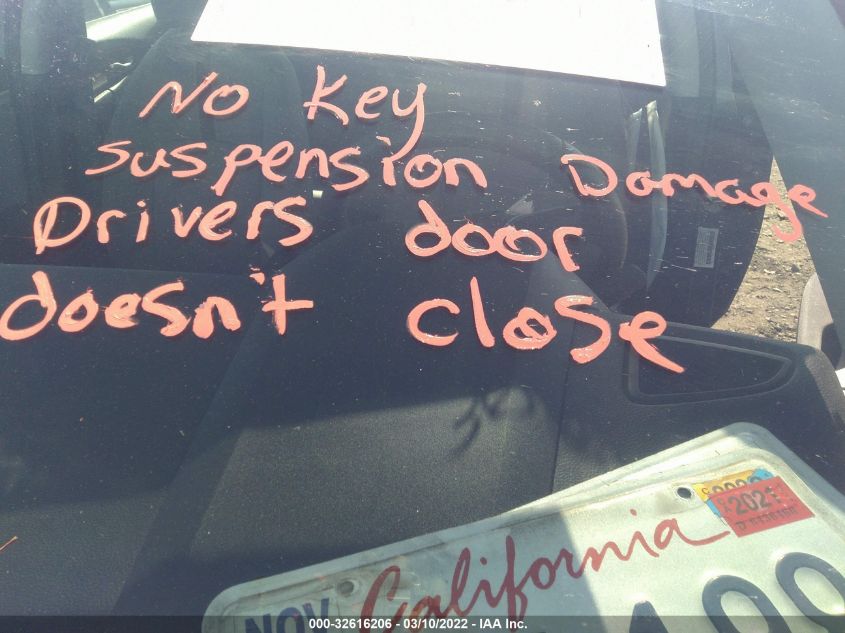 No Key
suspension Damage
Drivers door
doesn't close
2021
California
NOV
000-32616206 - 03/10/2022 - IAA Inc.